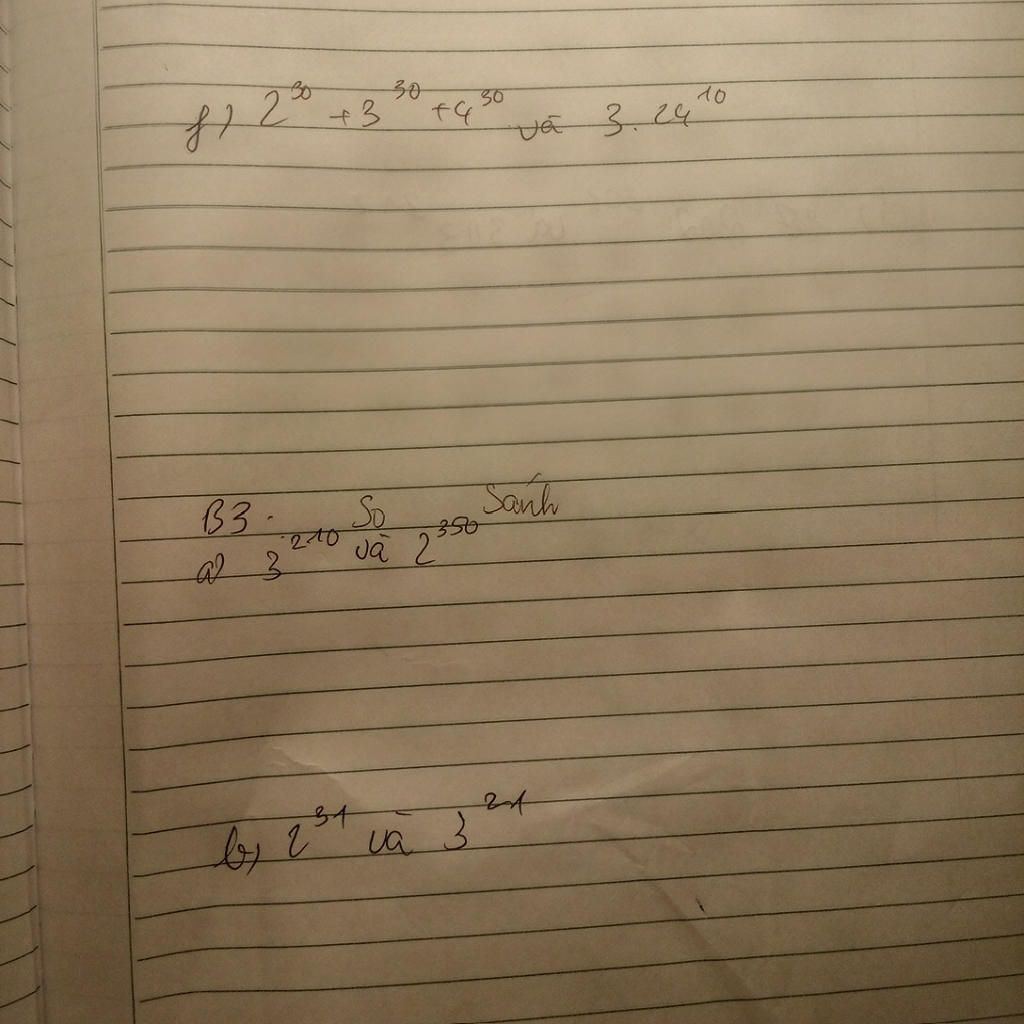 f) 2^30 + 3^30 + 4^30 và 3. 24^10
B3. So Sánh
a) 3^210 và 2^350
b) 2^31 và 3^21